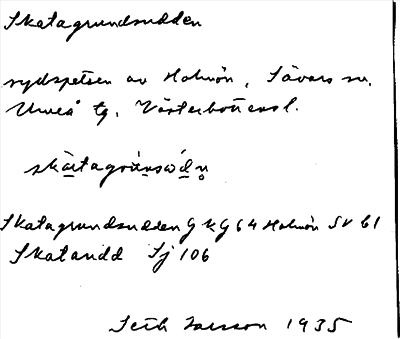 Skatagrundsudden
sydspetsen av Holmön, Sävars sn.
Umeå tg. Västerbottens l.
Skatagrundsudden GKG 64 Holmön SV 61
Skatudd Sj 106
Seth Larsson 1935